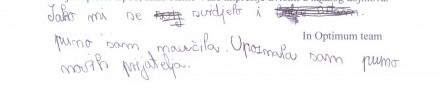 Jako mi se svidjelo i
In Optimum team
puno sam naučila. Upoznala sam puno
novih prijatelja.